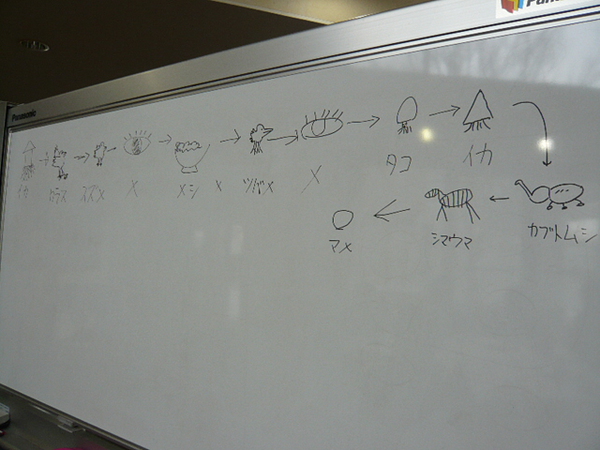 Panasonic
イカ カラス スズメ メ メシ メ ツバメ メ タコ イカ
マメ シマウマ カブトムシ